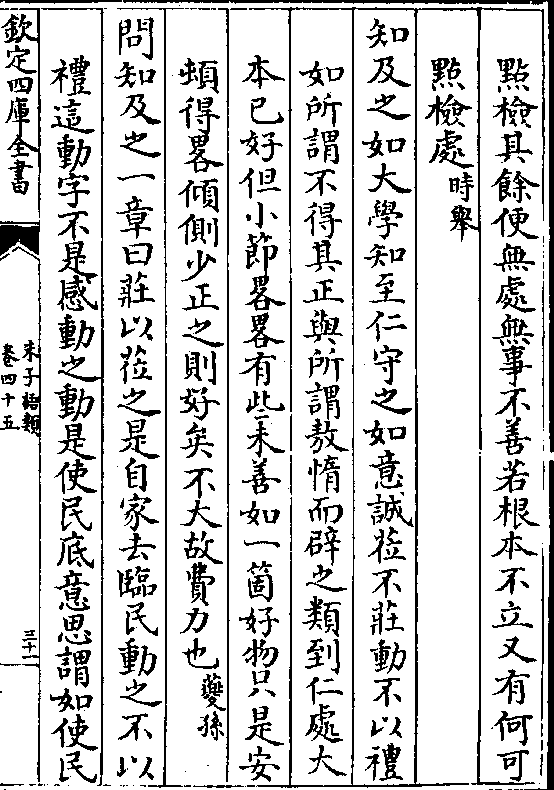 點檢其餘便無處無事不善若根本不立又有何可
點檢處時舉
知及之如大學知至仁守之如意誠莅不莊動不以禮
如所謂不得其正與所謂敖惰而辟之類到仁處大
本已好但小節畧畧有些未善如一箇好物只是安
頓得畧傾側少正之則好矣不大故費力也夔孫
問知及之一章曰莊以莅之是自家去臨民動之不以
禮這動字不是感動之動是使民底意思謂如使民
欽定四庫全書
朱子語類
卷四十五
三十一